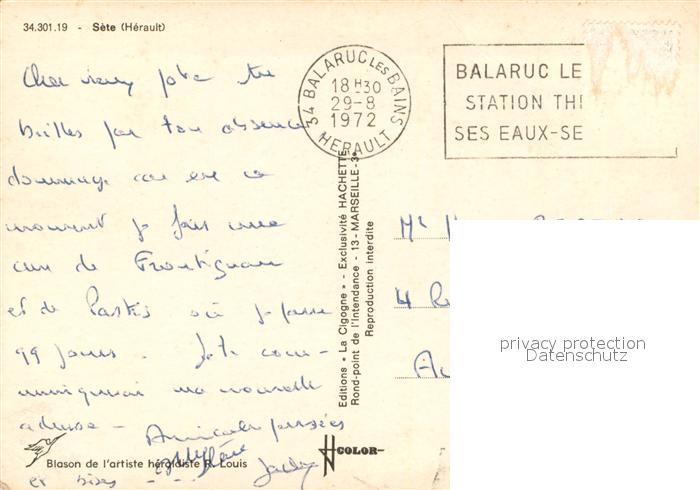 34.301.19 - Sète (Hérault)
Cher vieux pote tu
brilles par ton absence
dommage car en ce
moment je fais une
cure de Frontignan
et de Pastis où je passe
99 jours. Je te com-
muniquerai ma nouvelle
adresse - Amicales pensées
et bises
34 BALARUC LES BAINS
18H30
29-8
1972
HERAULT
BALARUC LE
STATION TH
SES EAUX-SE
Editions « La Cigogne » - Exclusivité HACHETTE
Rond-point de l'Intendance - 13 - MARSEILLE-3e
Reproduction interdite
4 R
privacy protection
Datenschutz
COLOR
Blason de l'artiste héraldiste R. Louis